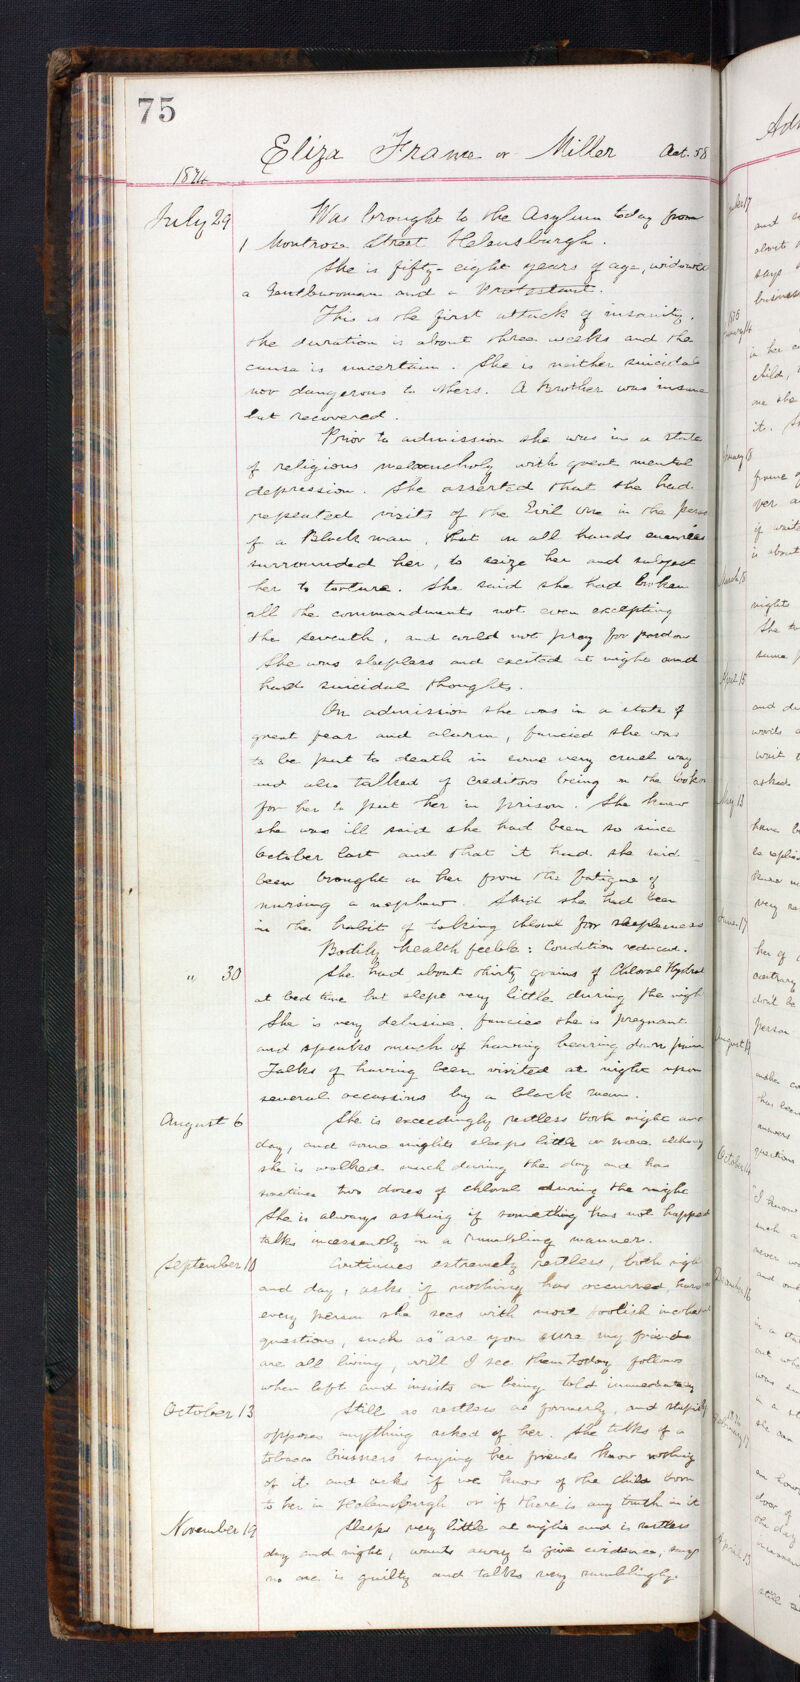 75
Eliza Frame or Miller Aet. 58
1874
July 29 Was brought to the Asylum today from
1 Montrose Street Helensburgh.
She is fifty-eight years of age, widowed
a Gentlewoman and a Protestant.
This is the first attack of insanity.
the duration is about three weeks and the
cause is uncertain. She is neither suicidal
nor dangerous to others. A Brother was insane
but recovered.
Prior to admission she was in a state
of religious melancholy with great mental
depression. She asserted that she had
repeated visits of the Evil One in the person
of a Black man, that on all hands enemies
surrounded her, to seize her and subject
her to torture. She said she had broken
all the commandments not even excepting
the seventh, and could not pray for pardon
She was sleepless and excited at night and
had suicidal thoughts.
On admission she was in a state of
great fear and alarm, fancied she was
to be put to death in some very cruel way
and also talked of creditors being on the look
for her to put her in prison. She knew
she was ill said she had been so since
October last and that it had she said
been brought on her from the fatigue of
nursing a nephew. Said she had been
in the habit of taking chloral for sleeplessness
Bodily health feeble: Condition reduced.
" 30 She had about thirty grains of Chloral Hydrat
at bed time but slept very little during the nigh
She is very delusive, fancies she is pregnant
and speaks much of having bearing down pain
Talks of having been visited at night upon
several occassions by a black man.
August 6 She is exceedingly restless both night and
day, and some nights sleeps little or none althoug
she is walked much during the day and has
sometimes two doses of chloral during the night
She is always asking if something has not happened
talks incessantly in a rambling manner.
September 10 Continues extremely restless, both nigh
and day, asks if nothing has occurred,
every person she sees with most foolish
questions, such as "are you sure my friends
are all living, will I see them today, follows
when left and insists on being told immediately
October 13 Still as restless as formerly, and stupidly
opposes anything asked of her. She talks of a
tobacco business saying her friends know nothing
of it and asks if we know of the child born
to her in Helensburgh or if there is any truth in it
November 19 Sleeps very little at night and is restless
day and night, wants away to give evidence, says
no one is guilty and talks very ramblingly.